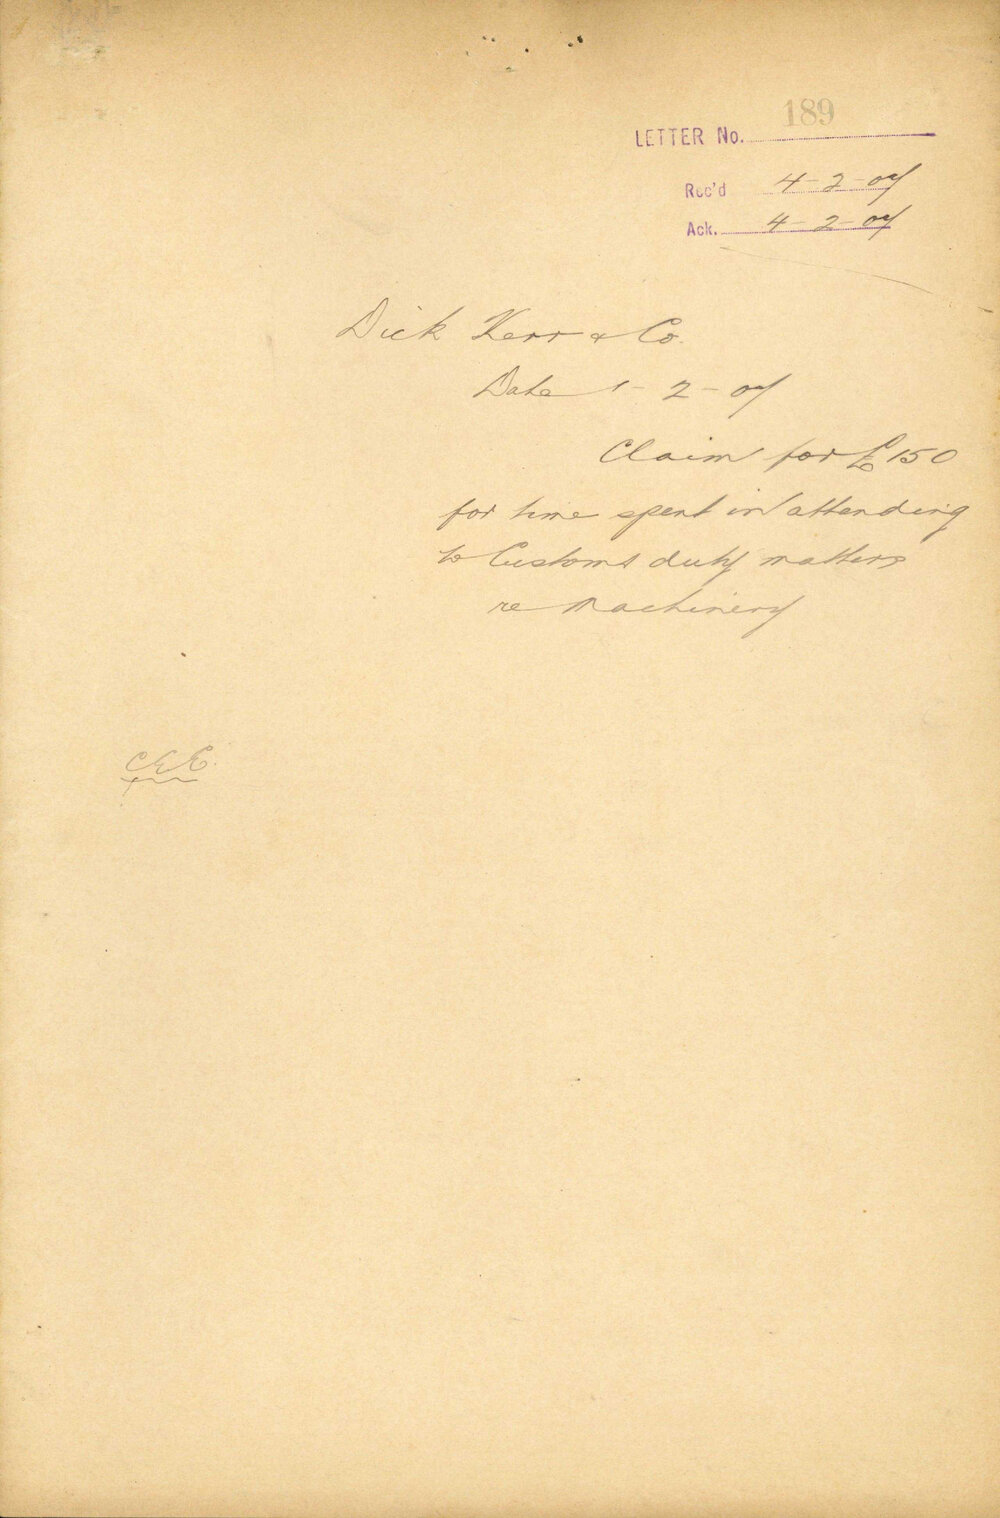 189
LETTER No.
Rec'd 4-2-07
Ack. 4-2-07
Dick Kerr & Co.
Date 1-2-07
Claim for £150
for time spent in attending
to Customs duty matters
re Machinery